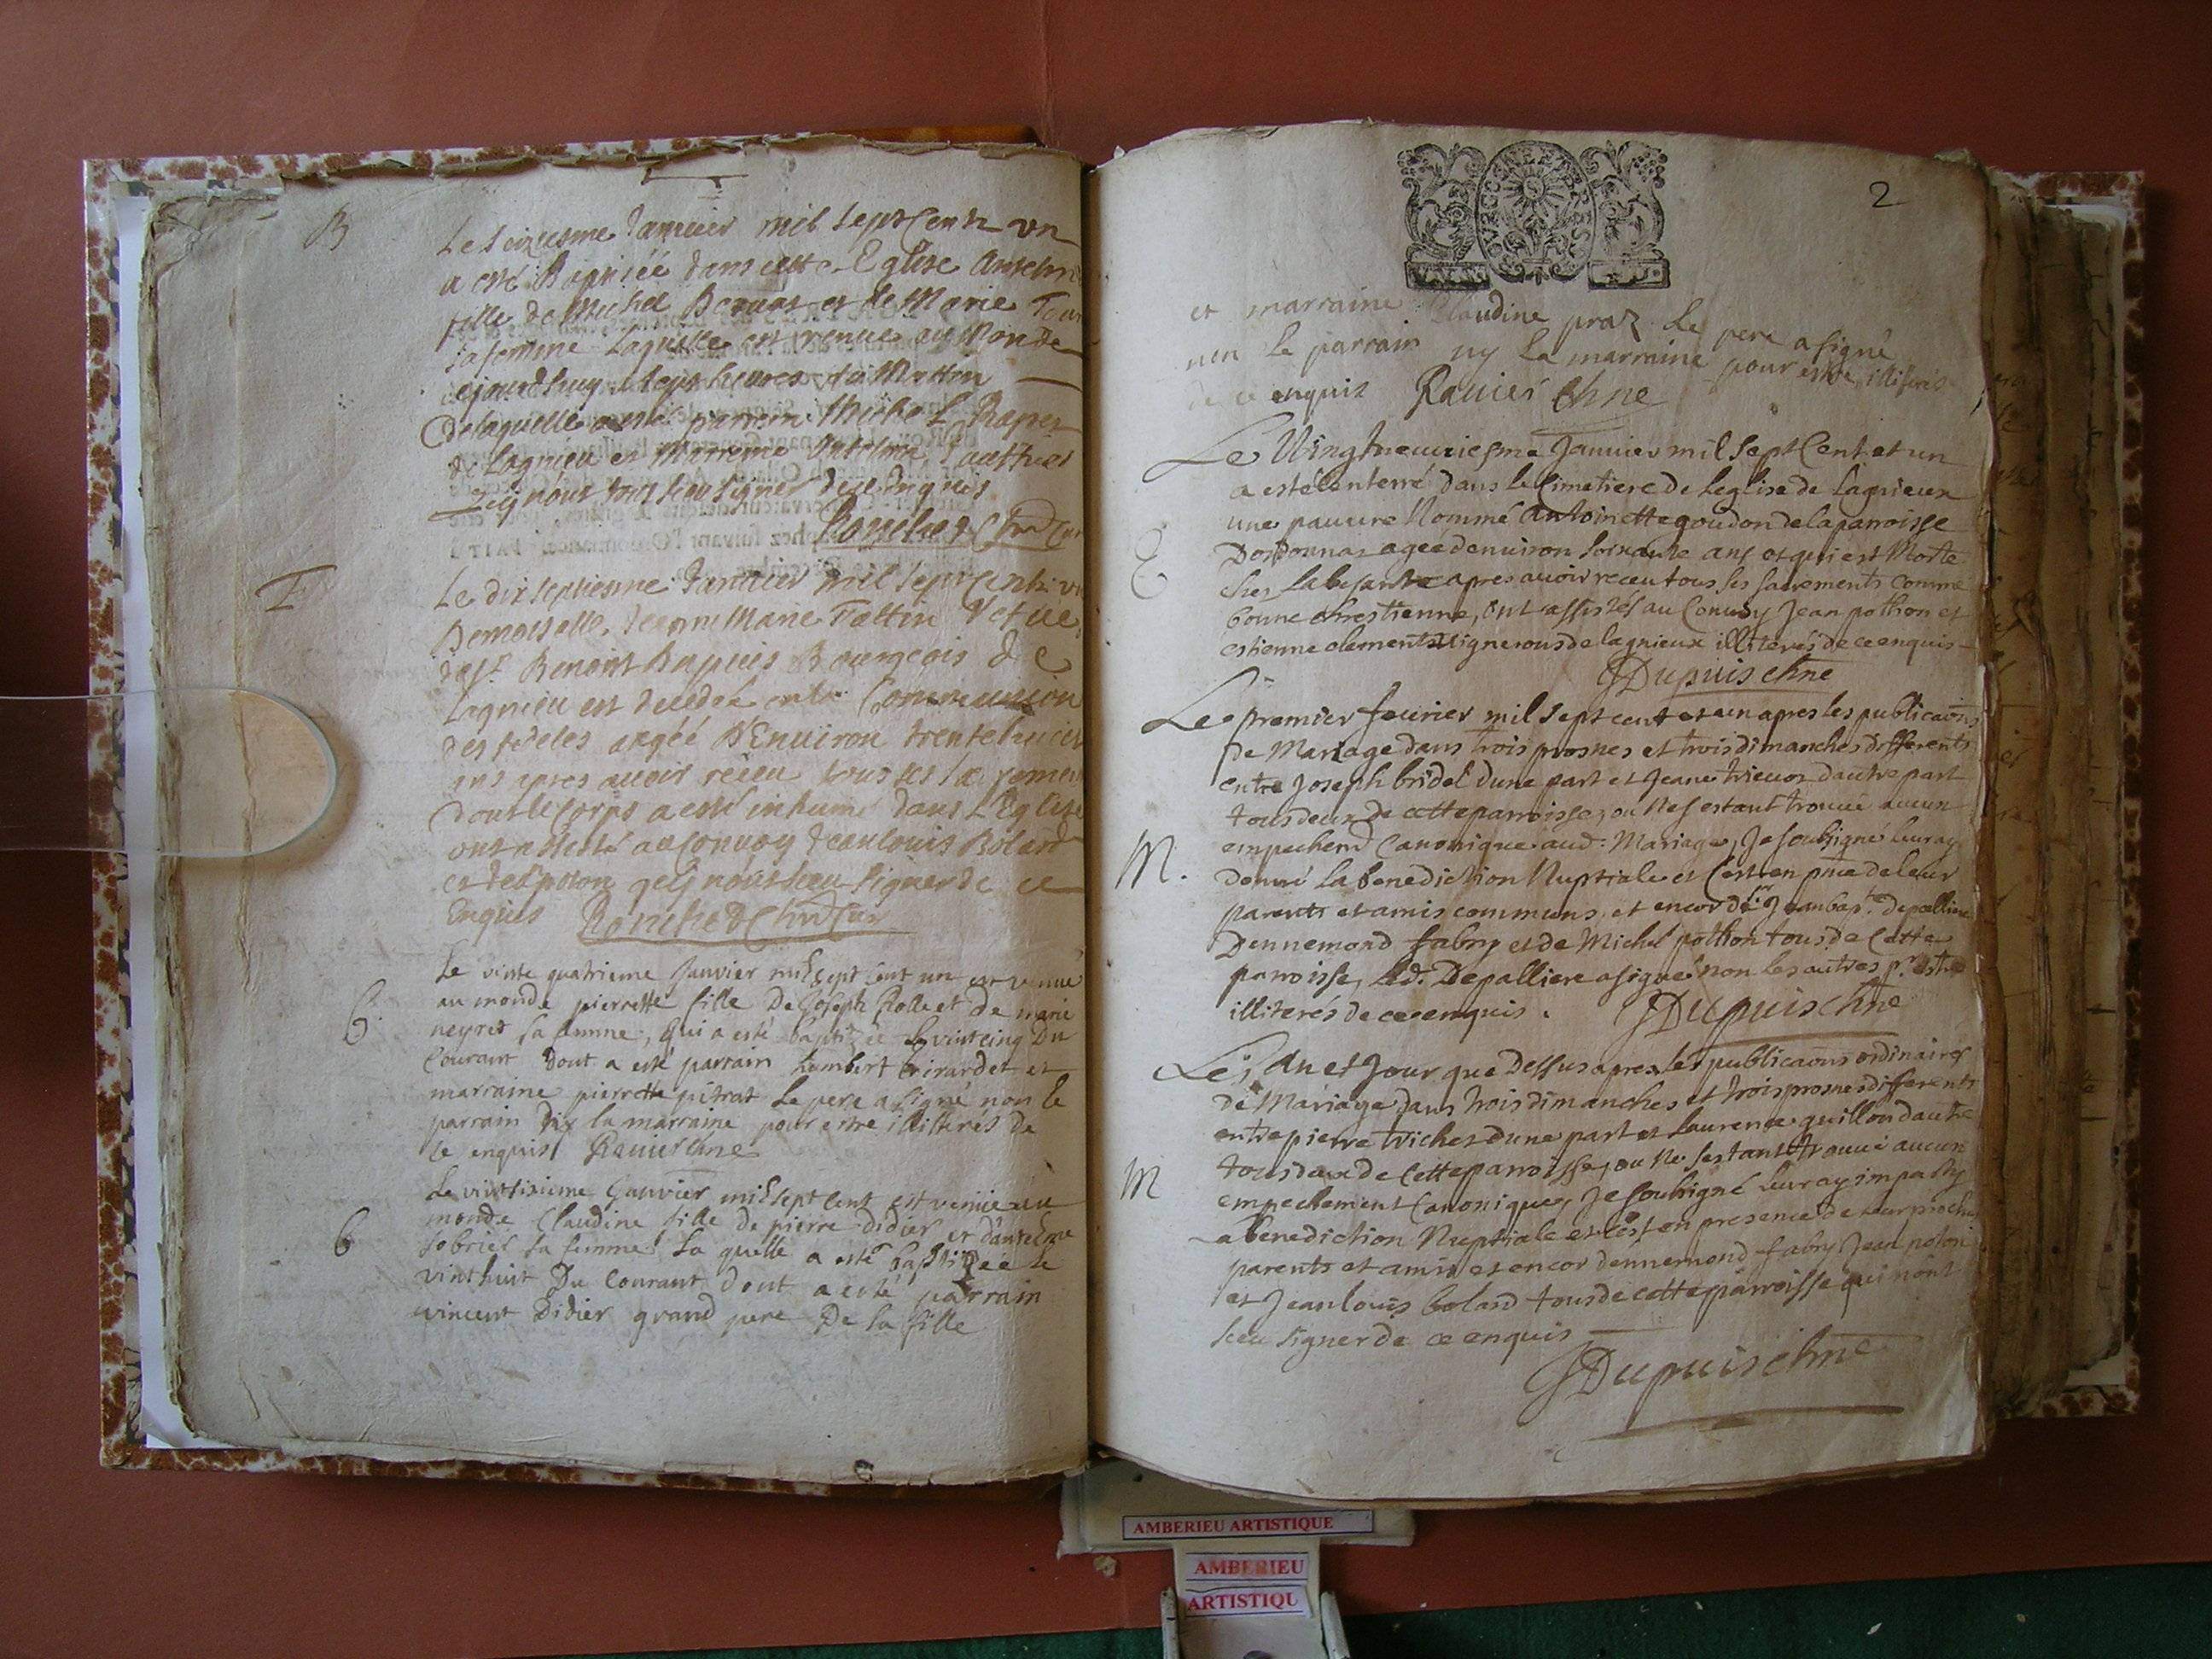 B
Le seiziesme Janvier mil sept Cents un
a esté Baptisée dans cette Eglise Anselme
fille de Michel et de Marie
sa femme laquelle est venue au Monde
cejourdhuy a sept heures du Mattin
de laquelle a esté parrein Michel
de Lagnieu et Marreine Antelme
signer de ce Enquis
Ponchet Chne Cur
Le dix septiesme Janvier mil sept Cents un
Demoiselle Jeanne Marie Tattin Vefve
de Sr Benoist Dupuis Bourgeois de
Lagnieu est decedée en la Communion
des fideles aagéé D'Environ trente huict
ans apres avoir receu tous ses sacremens
dont le Corps a esté inhumé dans L'Eglise
ont assisté au Convoy Jean Louis Bolard
et signer de ce
Enquis Ponchet Chne Cur
Le vinte quatrieme Janvier mil sept Cent un est venue
B.
au monde pierrette fille De Joseph Rolle et de marie
neyret sa femme, qui a esté baptizée le vintcinq Du
Courant Dont a esté parrain humbert Girardet et
marraine pierrette pitrat Le pere a signé non le
parrain ny la marraine pour estre illitérés de
ce enquis Ravier Chne
Le vintsixieme Janvier mil sept Cent est venue au
B
monde Claudine fille de pierre didier et d'antelme
sobrier sa femme La quelle a esté baptizée le
vinthuit Du Courant dont a esté parrain
vincent Didier grand pere De la fille
2
et marraine Claudine praz Le pere a signé
non le parrain ny la marraine pour estre illiterés
de ce enquis Ravier Chne
Le Vingtneuviesme Janvier mil sept Cent et un
a esté enterré dans le Cimetiere de Leglise de Lagnieux
une pauvre Nommé Antoinette goudon de la parroisse
Dordonnas ageé denviron soixante ans et qui est Morte
E
Ches apres avoir receu tous ses sacrements comme
bonne chrestienne, ont assistés au Convoy Jean pothon et
estienne clement vignerons de lagnieux illiterés de ce enquis
JDupuis chne
Le premier fevrier mil sept cent et un apres les publicaons
de Mariage dans trois prosnes et trois dimanches differents
entre Joseph bridel dune part et Jeane trievoz dautre part
tous deux de cette parroisse, ou Ne sestant trouvé aucun
empechemt Canonique aud: Mariage, Je soubsigné leur ay
M.
donné La benediction Nuptiale et Cest en pnce de leur
parents et amis communs, et encor de Sr Jean bapte. Depalliere
Dennemond fabry et de Michel pothon tous de Cette
parroisse, Led: Depalliere a signé non les autres pr estre
illiterés de ce enquis. JDupuis Chne
Les An et Jour que Dessus apres les publicaons ordinaires
de Mariage dans trois dimanches et trois prosnes differents
entre pierre trichet dune part et Laurence guillon dautre
tous deux de cette parroisse, ou Ne sestant trouvé aucun
M
empechement Canonique, Je soubsigné leur ay imparty
la benediction Nuptiale et cest en presence de leur proches
parents et amis et encor dennemond fabry Jean poton
et Jean louis bolard tous de cette parroisse qui nont
sceu signer de ce enquis
JDupuis chne
AMBERIEU ARTISTIQUE
AMBERIEU
ARTISTIQU